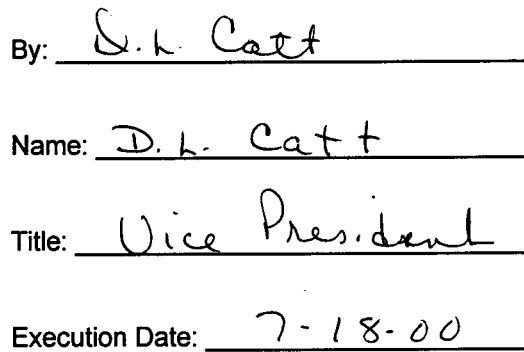 By: D.L. Catt
Name: D.L. Catt
Title: Vice President
Execution Date: 7-18-00